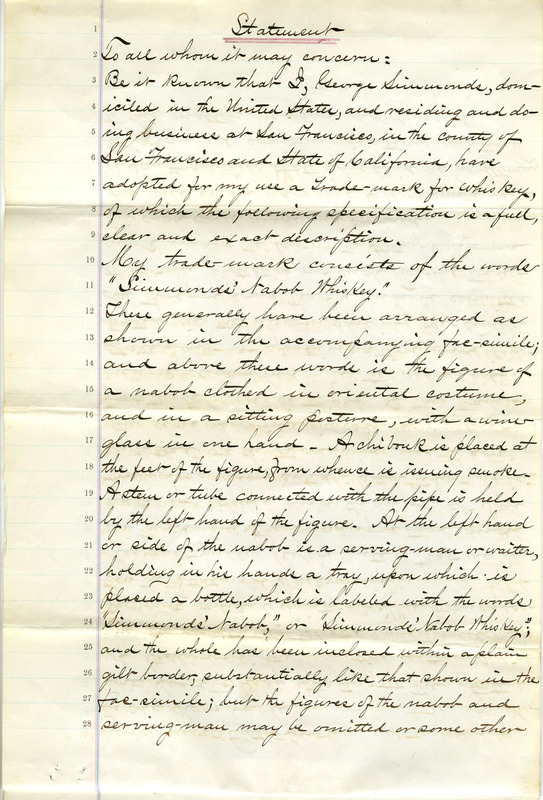 Statement
1
2 To all whom it may concern:
3 Be it known that I, George Simmonds, dom-
4 iciled in the United States, and residing and do-
5 ing business at San Francisco, in the county of
6 San Francisco and State of California, have
7 adopted for my use a Trade-mark for whiskey,
8 of which the following specification is a full,
9 clear and exact description.
10 My trade-mark consists of the words
11 "Simmonds' Nabob Whiskey."
12 These generally have been arranged as
13 shown in the accompanying fac-simile;
14 and above these words is the figure of
15 a nabob clothed in oriental costume,
16 and in a sitting posture, with a wine
17 glass in one hand - A chibouk is placed at
18 the feet of the figure, from whence is issuing smoke.
19 A stem or tube connected with the pipe is held
20 by the left hand of the figure. At the left hand
21 or side of the nabob is a serving-man or waiter,
22 holding in his hands a tray, upon which is
23 placed a bottle, which is labeled with the words
24 "Simmonds' Nabob," or "Simmonds' Nabob Whiskey";
25 and the whole has been inclosed within a plain
26 gilt border, substantially like that shown in the
27 fac-simile; but the figures of the nabob and
28 serving-man may be omitted or some other